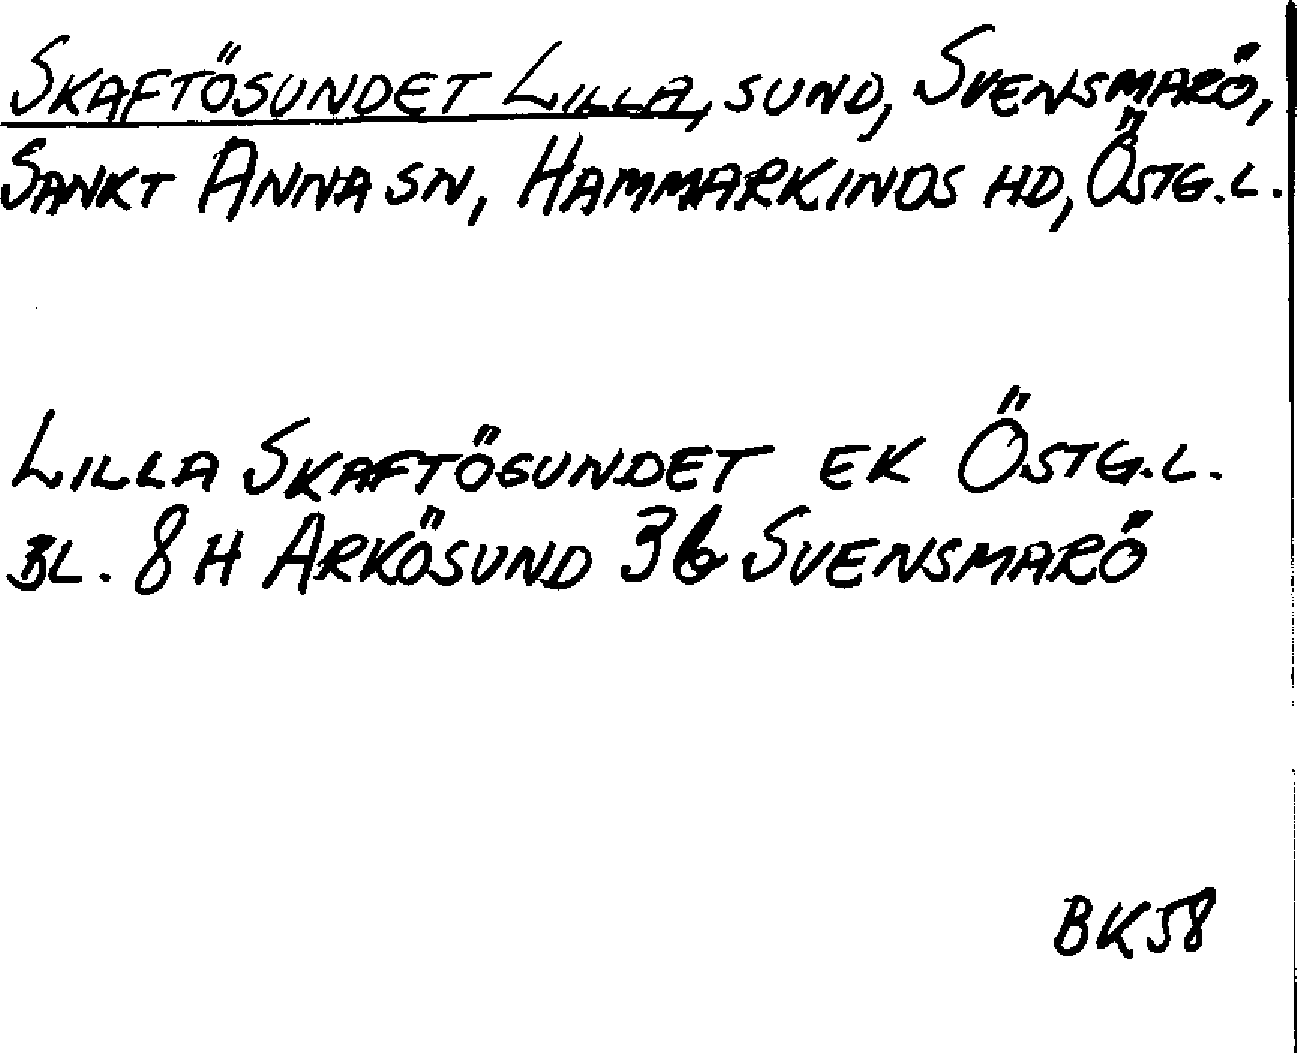 SKAFTÖSUNDET LILLA, SUND, SVENSMARÖ,
SANKT ANNA SN, HAMMARKINDS HD, ÖSTG.L.
LILLA SKAFTÖSUNDET EK ÖSTG.L.
BL. 8 H ARKÖSUND 3b SVENSMARÖ
BK58